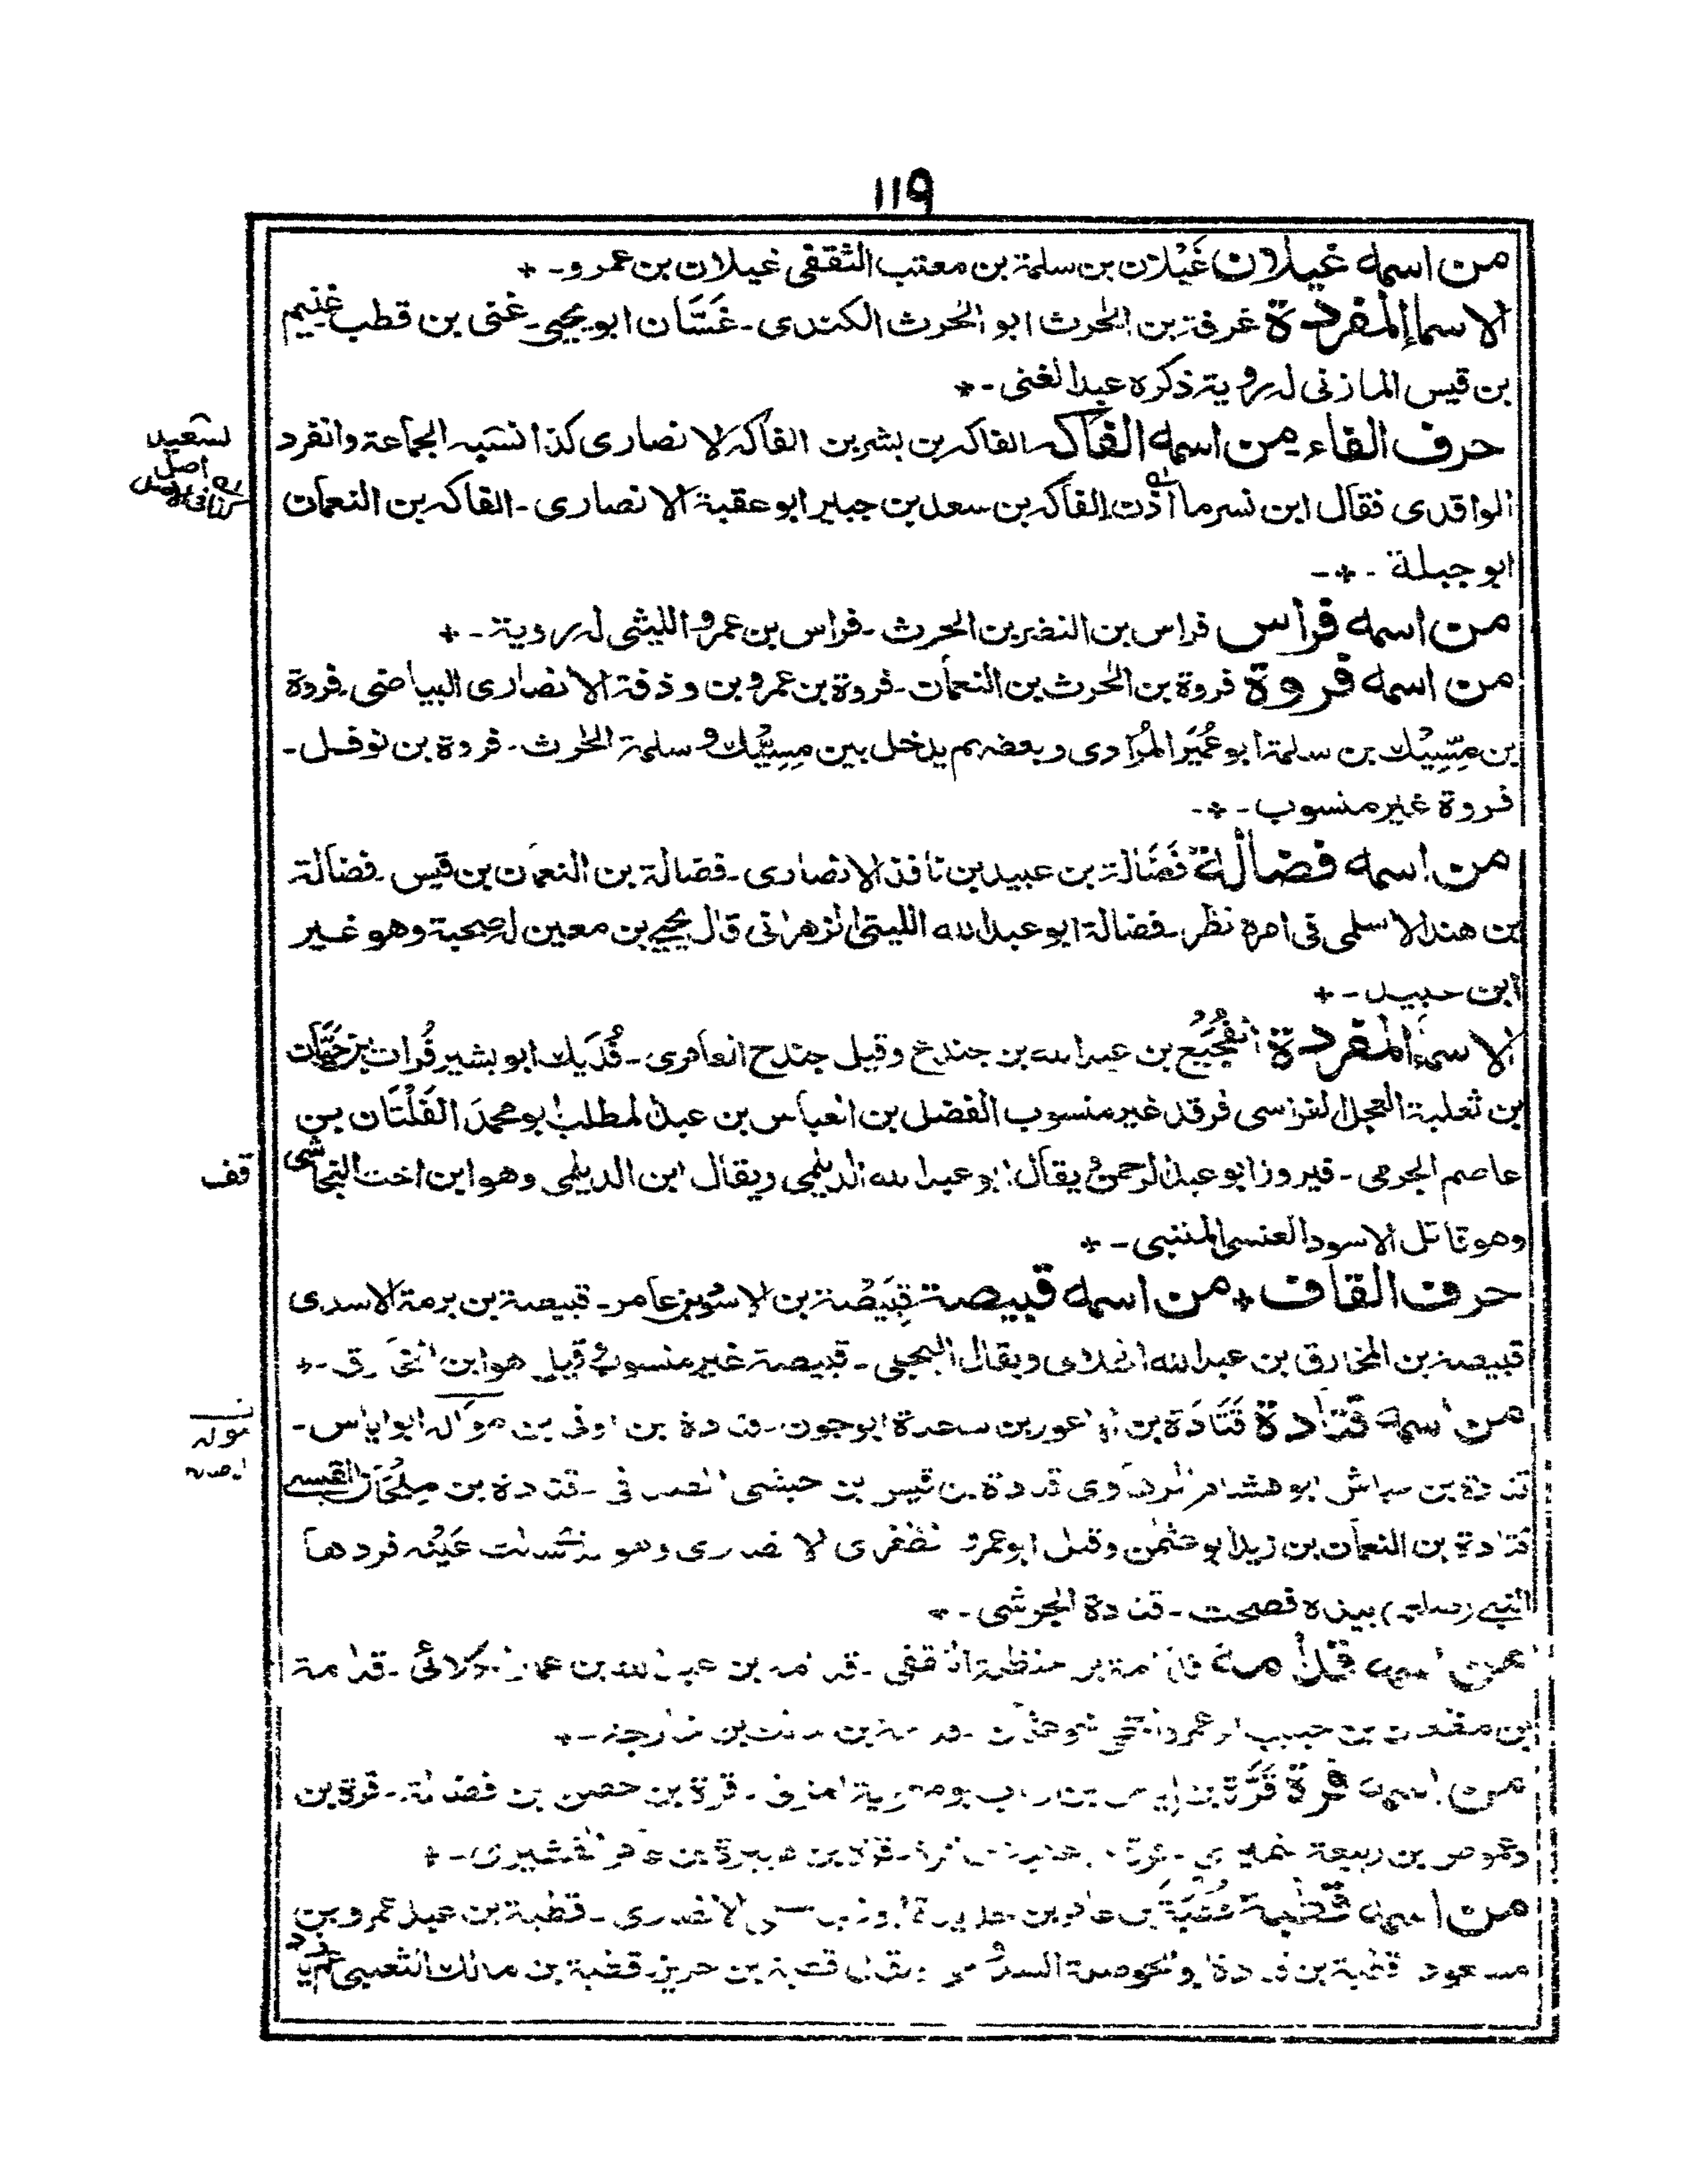 ١١٩
من اسمه غيلان غَيْلان بن سلمة بن معتب الثقفى غيلان بن عمرو-+
الاسماء المفردة غرفة بن الحرث ابو الحرث الكندى-غَسَّان ابو يحيى-غنى بن قطب-غنيم
بن قيس المازنى له روية ذكره عبد الغنى-+
حرف الفاء-من اسمه الفاكه-الفاكه بن بشر بن الفاكه الانصارى كذا نسبه الجماعة وانفرد
الواقدى فقال ابن نسر الفاكه بن سعد بن جبير ابو عقبة الانصارى-الفاكه بن النعمان
ابو جبلة-+-
من اسمه فراس فراس بن النضر بن الحرث-فراس بن عمرو الليثى له روية-+
من اسمه فروة فروة بن الحرث بن النعمان-فروة بن عمرو بن وذفة الانصارى البياضى-فروة
بن مِسِّيْك بن سلمة ابو عُمَيْر المُرادى وبعضهم يدخل بين مِسِيْك و سلمة الحرث-فروة بن نوفل-
فروة غير منسوب-+-
من اسمه فضالة فَضَالة بن عبيد بن نافذ الانصارى-فضالة بن النعمان بن قيس-فضالة
بن هند الاسلمى فى امره نظر-فضالة ابو عبد الله الليثى الزهرانى قال يحيى بن معين له صحبة وهو غير
ابن عبيد-+
الاسماء المفردة الفُجَيْع بن عبد الله بن جندع وقيل جندح العامرى-فُدَيك ابو بشير فُرات بن حَيَّان
بن ثعلبة العجل فرقد غير منسوب الفضل بن العباس بن عبد المطلب ابو محمد الفَلْتَان بن
عاصم الجرمى-فيروز ابو عبد الرحمن ويقال ابو عبد الله الديلمى ويقال ابن الديلمى وهو ابن اخت النجاشى
وهو قاتل الاسود العنسى المتنبى-+
حرف القاف+من اسمه قبيصة قَبِيْصَة بن الاسود بن عامر-قبيصة بن برمة الاسدى
قبيصة بن المخارق بن عبد الله الهلالى ويقال البجلى-قبيصة غير منسوب قيل هو ابن المخارق-+
من اسمه قتادة قَتَادَة بن الاعور بن ساعدة ابو جون-قتادة بن اوفى بن موأله ابو اياس-
قتادة بن عباش ابو هشام الرهاوى قتادة بن قيس بن حبشى الصدفى-قتادة بن مِلْحَان القيسى
قتادة بن النعمان بن زيد ابو عثمن وقيل ابو عمرو الظفرى الانصارى وهو عَيْنه فردها
النبى بيده فصحت-قتادة الجرشى-+
من اسمه قدامة قدامة بن حنظلة الثقفى-قدامه بن عبد الله بن عمار الكلابى-قدامة
بن مظعون بن حبيب ابو عمرو-+
من اسمه قرة قُرَّة بن اياس بن رياب ابو معوية المزنى-قرة بن حصين بن فضالة-قرة بن
دعموص بن ربيعة قرة بن هبيرة بن عامر القشيرى-+
من اسمه قطبة قُطْبَة بن عامر بن حديدة ابو زيد الانصارى-قطبة بن عبد عمرو بن
مسعود قطبة بن قتادة ابو الحويصلة السدوسى ويقال قطبة بن حريز-قطبة بن مالك الثعلبى
قف